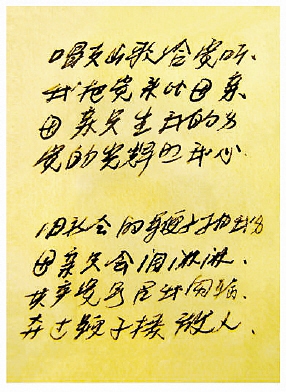 唱支山歌给党听、
我把党来比母亲、
母亲只生我的身
党的光辉照我心.
旧社会的鞭子抽我身
母亲只会泪淋淋、
共产党号召我闹
夺过鞭子揍敌人、